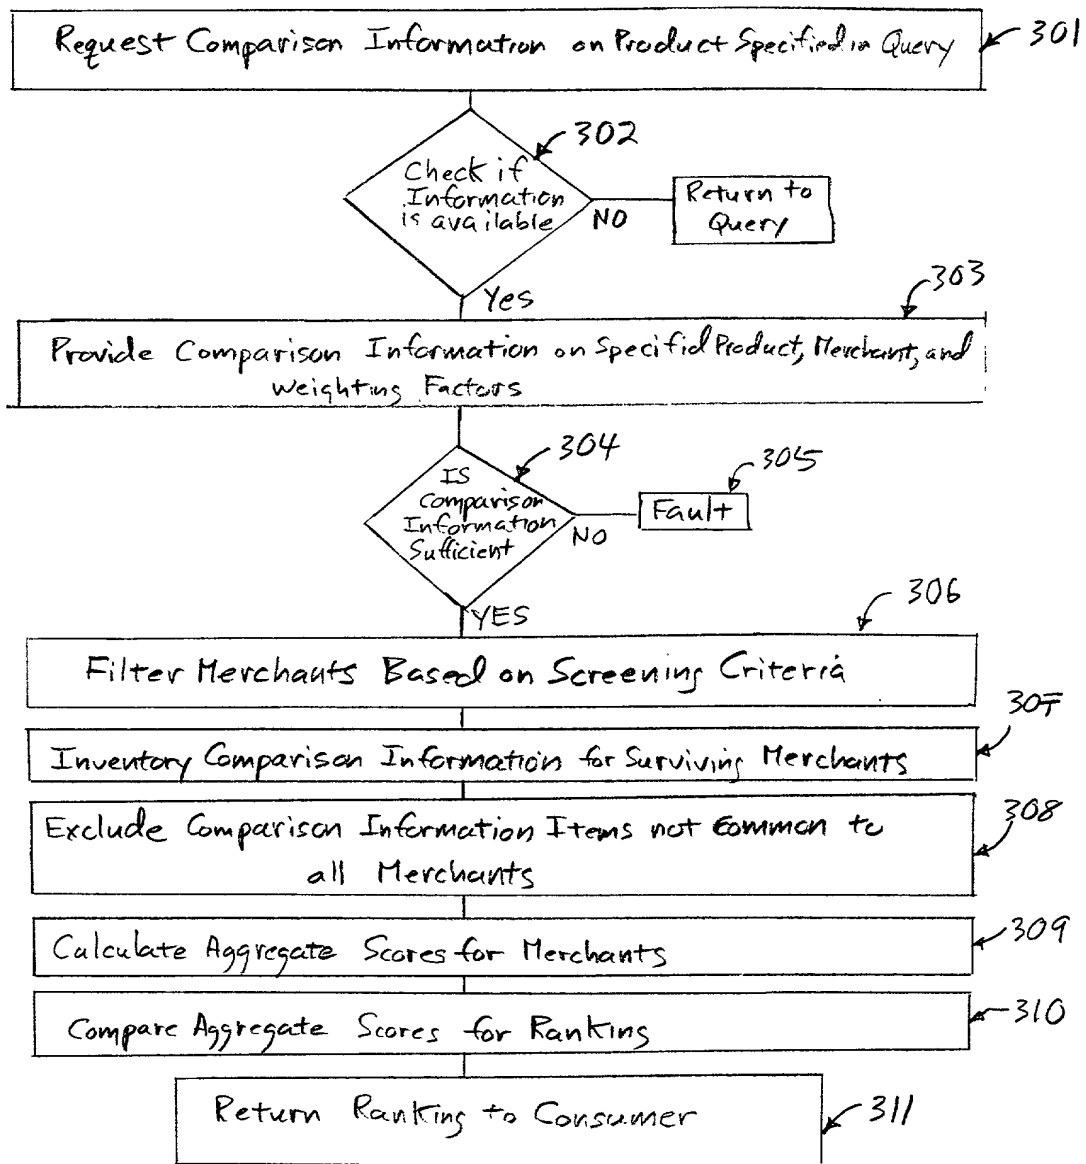 Request Comparison Information on Product Specified in Query
301
302
Check if
Information
is available
NO
Return to
Query
Yes
303
Provide Comparison Information on Specifid Product, Merchant, and
Weighting Factors
304
IS
Comparison
Information
Sufficient
NO
305
Fault
YES
306
Filter Merchants Based on Screening Criteria
307
Inventory Comparison Information for Surviving Merchants
308
Exclude Comparison Information Items not Common to
all Merchants
309
Calculate Aggregate Scores for Merchants
310
Compare Aggregate Scores for Ranking
Return Ranking to Consumer
311